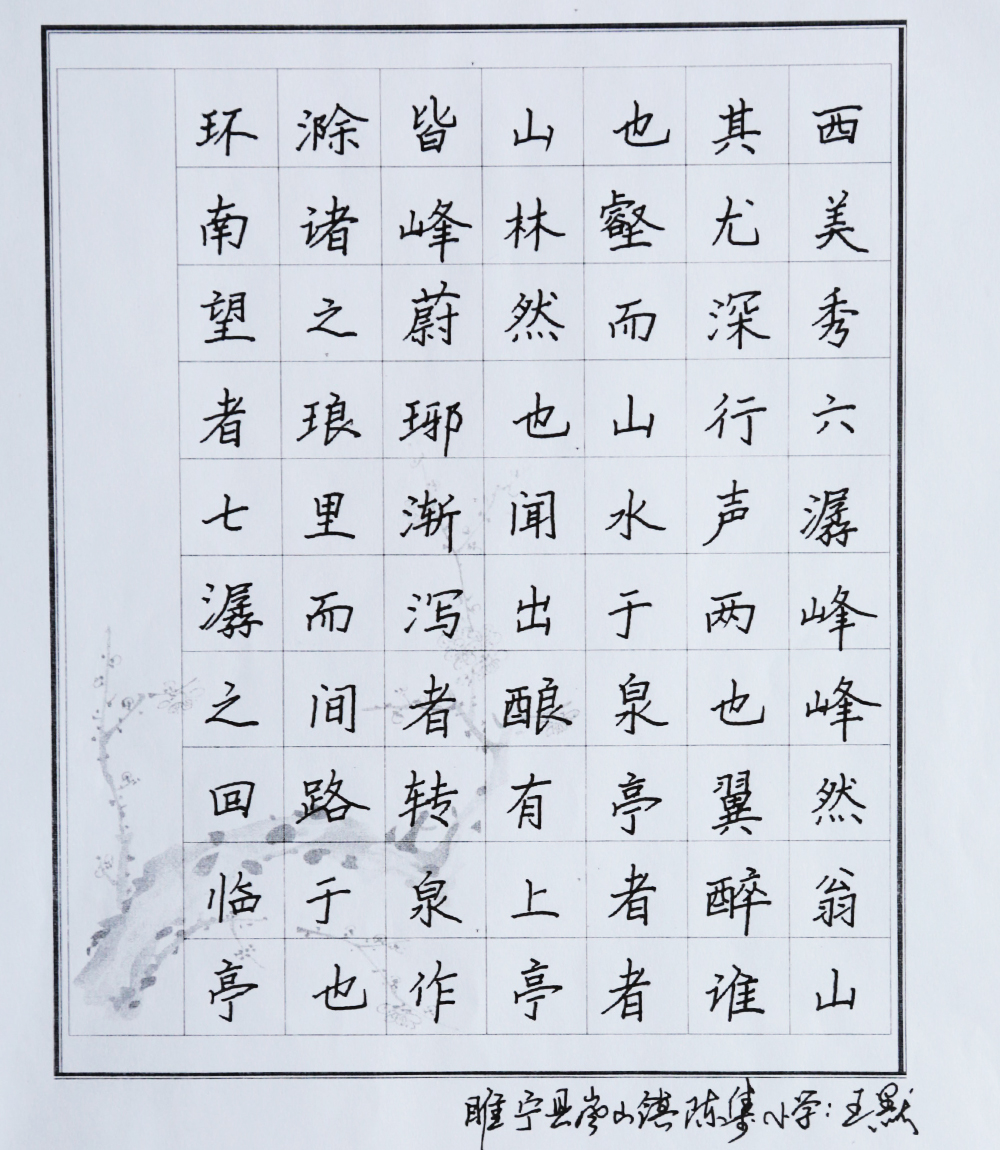 环滁皆山也其西
南诸峰林壑尤美
望之蔚然而深秀
者琅琊也山行六
七里渐闻水声潺
潺而泻出于两峰
之间者酿泉也峰
回路转有亭翼然
临于泉上者醉翁
亭也作亭者谁山
睢宁县岚山镇陈集小学：王默